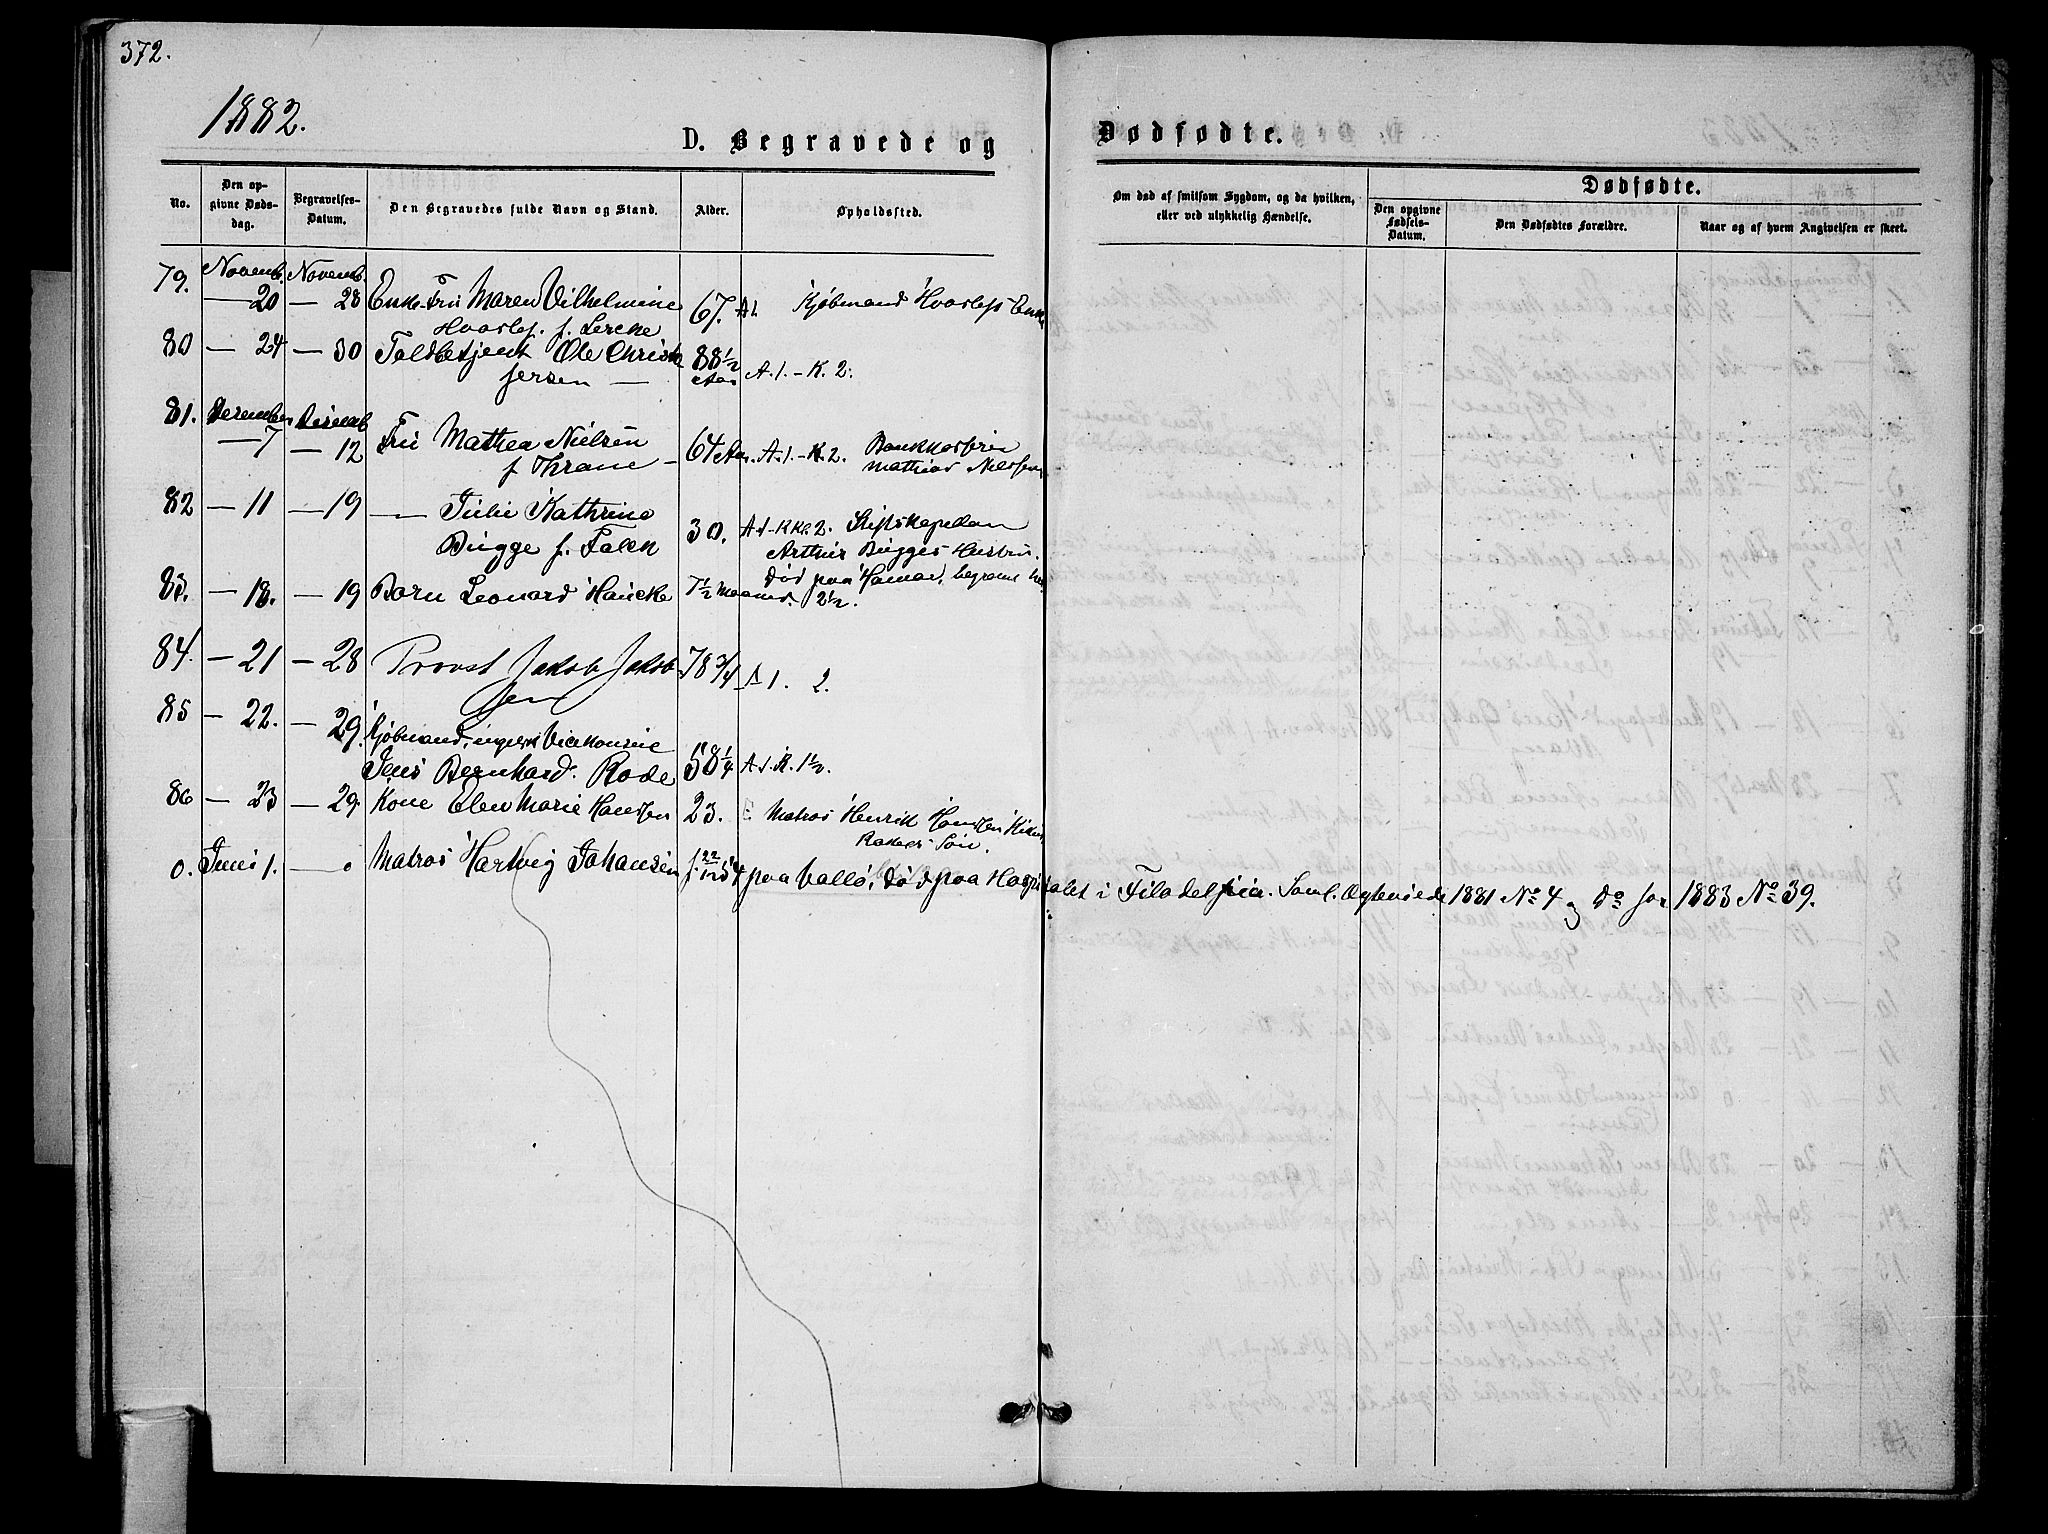 372.
1882.
D. Begravede og Dødfødte.
No.
Den opgivne Døds-dag.
Begravelses-Datum.
Den Begravedes fulde Navn og Stand.
Alder.
Opholdssted.
Om død af smitsom Sygdom, og da hvilken, eller ved ulykkelig Hændelse.
Dødfødte.
Den opgivne Fødsels-Datum.
Den Dødfødtes Forældre.
Naar og af hvem Angivelsen er skeet.
79. Novemb. Novemb
— 20 — 28 Enke-Fru Maren Vilhelmine 67. A1. Kjøbmand Enke
f. Lercke
80 — 24 — 30 Toldbetjent Ole Christo 88½
fersen — Aar A.1. - K. 2.
81. December Decemb
— 7 — 12 Fru Mathea Nielsen 64 Aar. A.1. - K. 2.
f Thrane — Mathias Nielsen
82 — 11 — 19 — Julie Kathrine 30. A1-KKl. 2. Skipskaptein
Bugge f. Falck Arthur Bugges Hustru.
Død paa Hamar, begravet her
83. — 18. — 19 Barn Leonard Hancke 7½ Maaned. 2½.
84. — 21 — 28 Provst Jakob Jakob 78¾ A 1. 2.
sen
85 — 22. — 29. Kjøbmand, engelsk Vicekonsul
Jens Bernhard Rode 58¼ A 1. K. 1½.
86 — 23 — 29. Kone Elen Marie Hansen 23. E Matros Henrik Hansen
Søn.
0. Juni 1. — 0 Matros Hartvig Johansen f. 22/12 54 paa Vallø, død paa Hospitalet i Filadelfia. Saml. Ægteviede 1881 No 4 og Do for 1883 No 39.